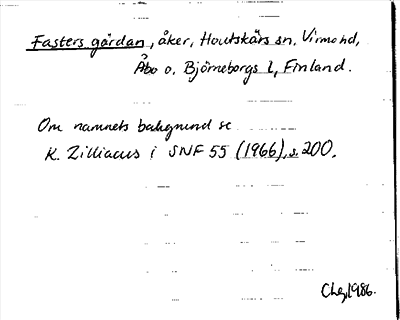 Fasters gärdan, åker, Houtskärs sn, Virmo hd,
Åbo o. Björneborgs l, Finland.
Om namnets bakgrund se
K. Zilliacus i SNF 55 (1966), s. 200.
1986.